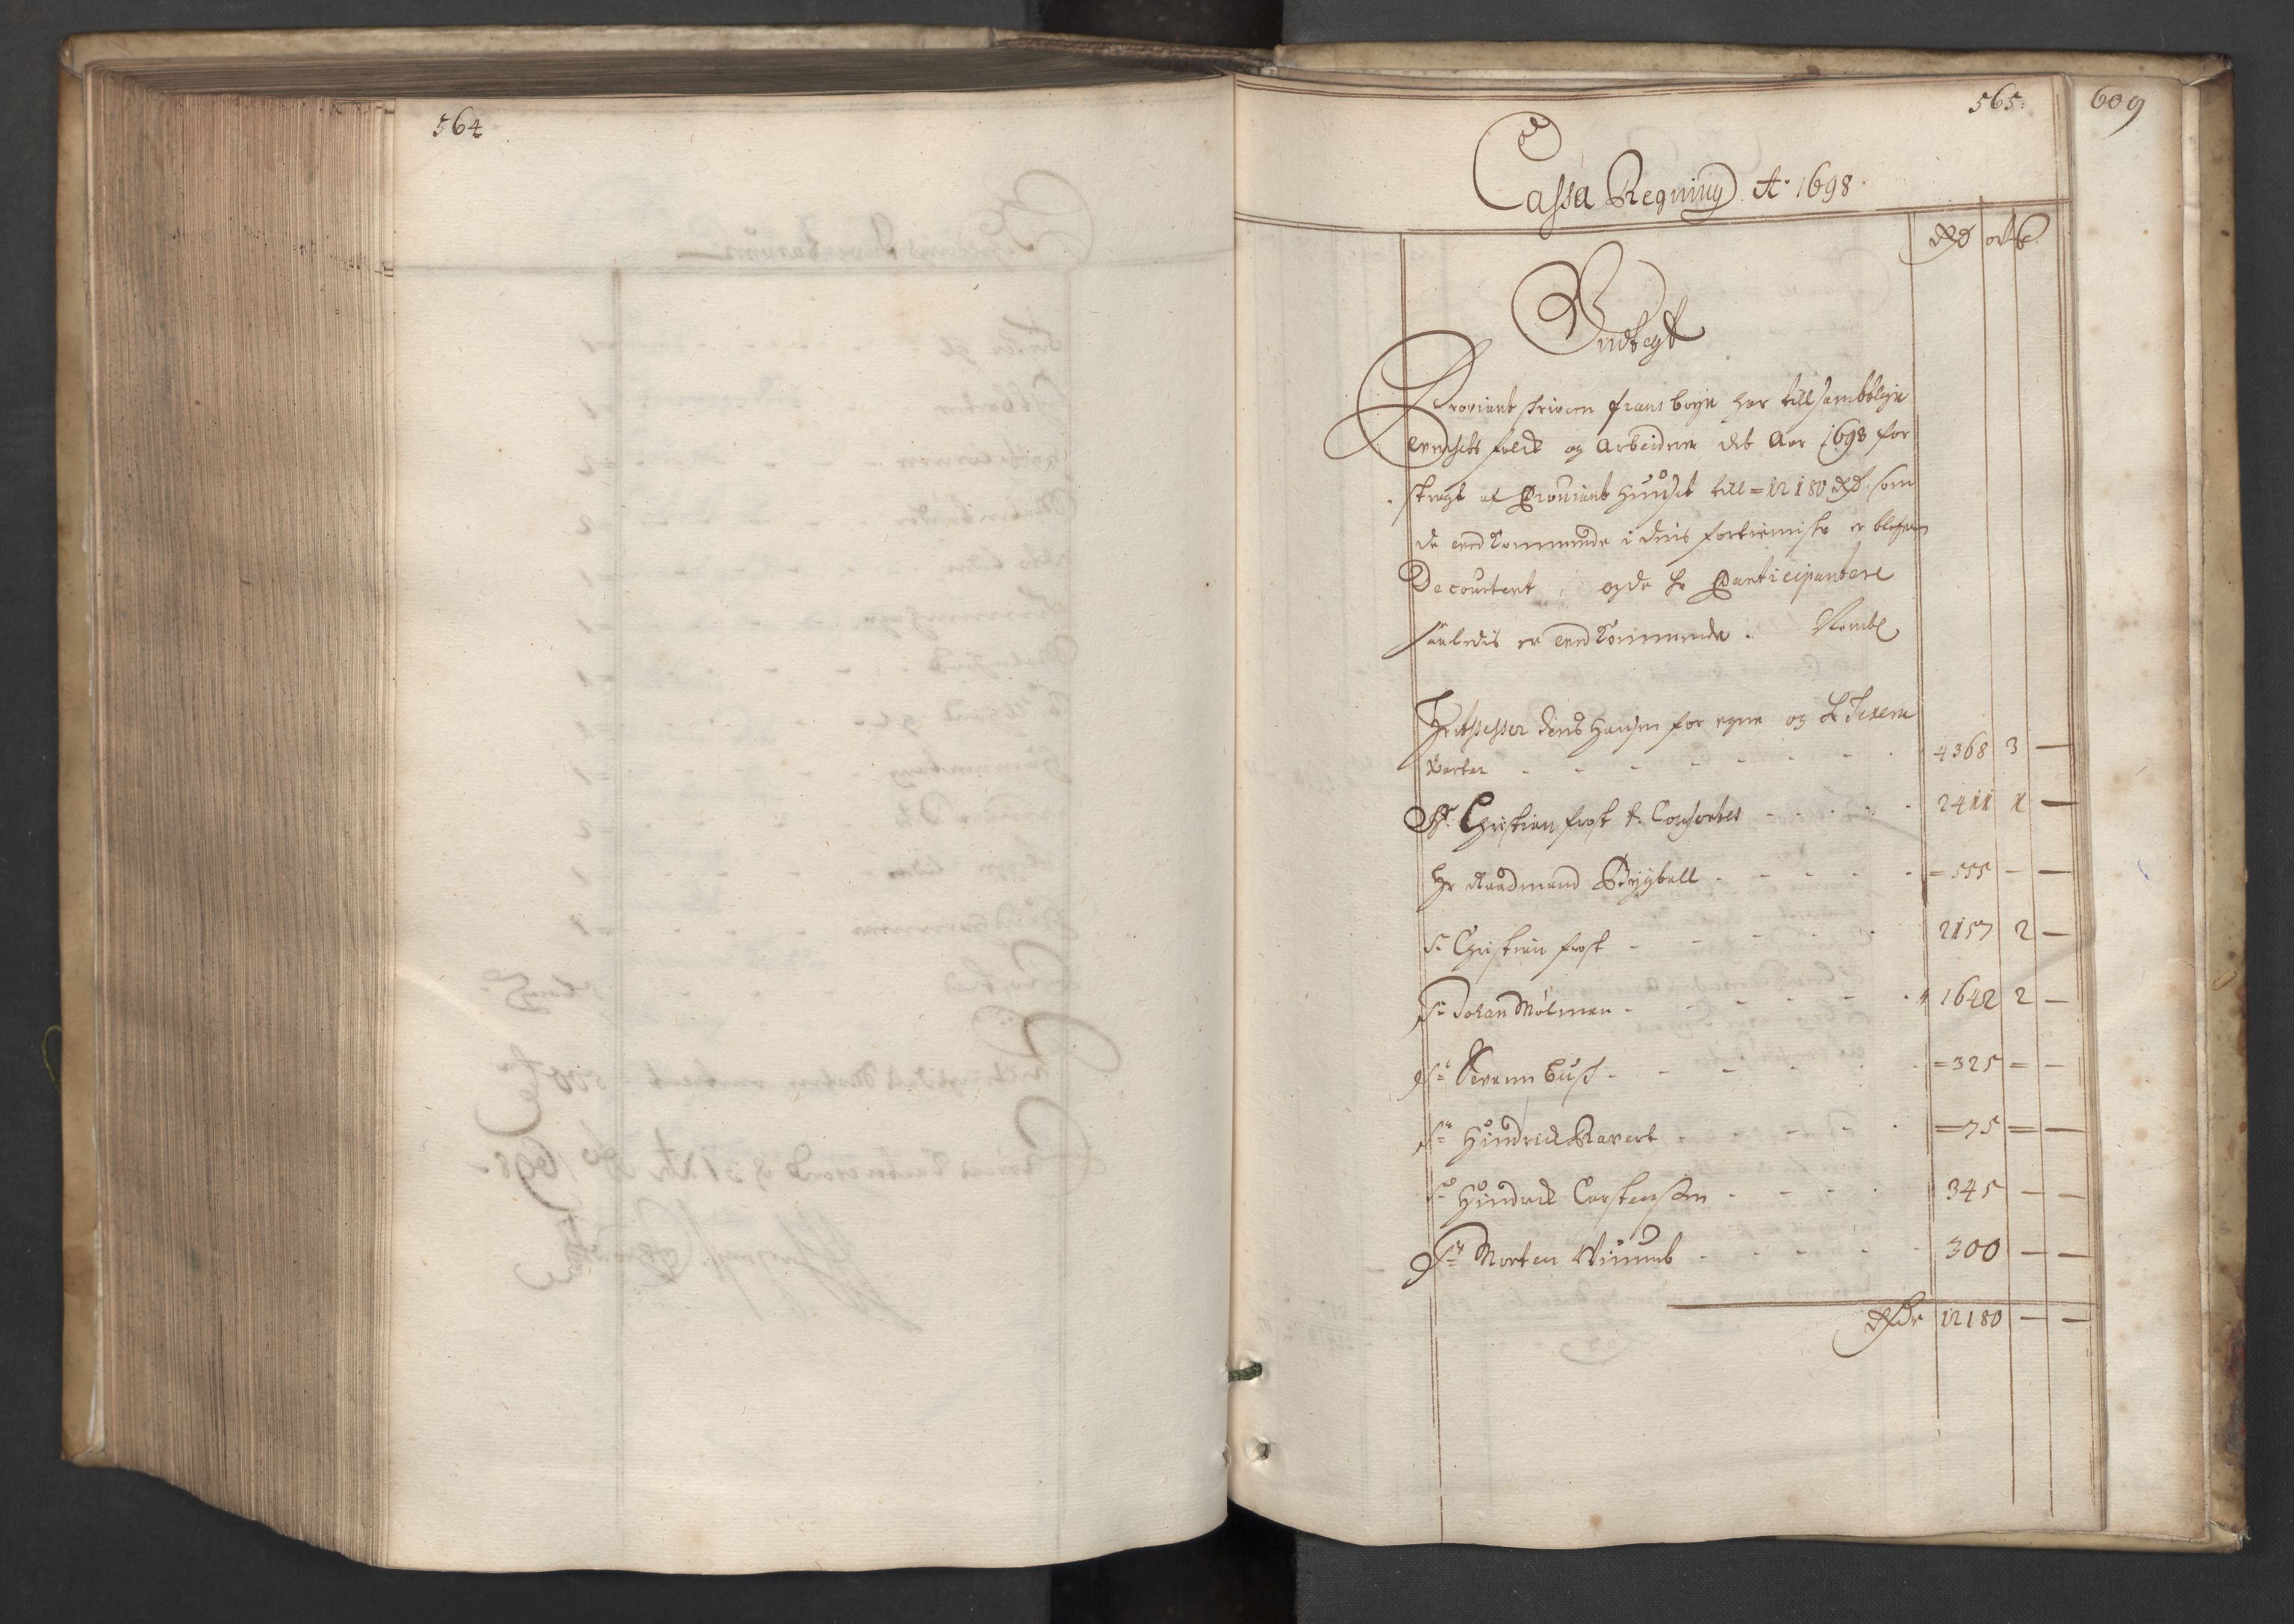 564
565.
609
Cassa Regning Ao 1698.
Rd ort ß
Udtegt
Proviant skriveren frans boye har till samblige
werchets folck og Arbeidere det Aar 1698 for
stragt af Proviant Huuset till = 12180 Rd. som
de ved kommende i deris fortieniste er blefven
Decourtert, og de Hr Participantere
saaledis er ved kommende. Nembl
Hr Assessor Jens Hansen for egne og Sr
Parter - - - - - - - 4368 3 —
Sr. Christian frost & Consortes - - - - 2411 1 —
Hr Raadmand - - - - - = 555 - —
Sr Christian frost - - - - - 2157 2 —
Sr Johan Mölman - - - - - - 1642 2 —
Sr Buß - - - - - = 325 = —
Sr Hindrich - - - - - = 75 = —
Sr Hindrik Carstensen - - - - 345 — —
Sr Morten - - - - - 300 — —
Rdr 12180 — —